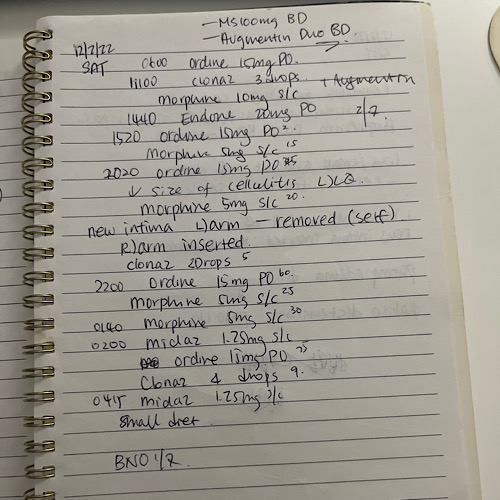 - MS100mg BD
- Augmentin Duo BD
12/2/22
SAT 0600 ordine 15mg PO.
1100 clonaz 3 drops + Augmentin
morphine 10mg s/c
1440 Endone 20mg PO 2/7.
1520 ordine 15mg PO
morphine 5mg s/c 15
2020 ordine 15mg PO
↓ size of cellulitis L)LQ.
morphine 5mg s/c 20.
new intima L)arm - removed (self)
R)arm inserted
clonaz 2Drops 5
2200 ordine 15mg PO 60.
morphine 5mg s/c 25
0140 morphine 5mg s/c 30
0200 midaz 1.25mg s/c
ordine 15mg PO 75
Clonaz 4 drops 9.
0415 midaz 1.25mg s/c
small diet
BNO 1/7